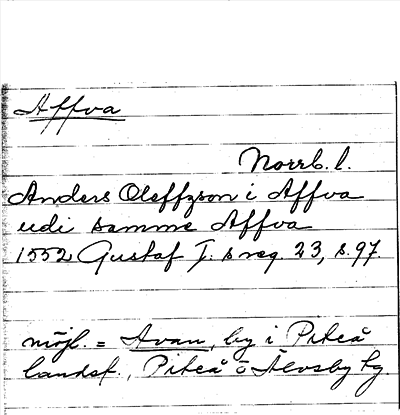 Affva
Norrb. l.
Anders Oleffzson i Affva
udi samme Affva
1552 Gustaf I:s reg. 23, s. 97.
möjl. = Avan, by i Piteå
landsf., Piteå o Älvsby tg